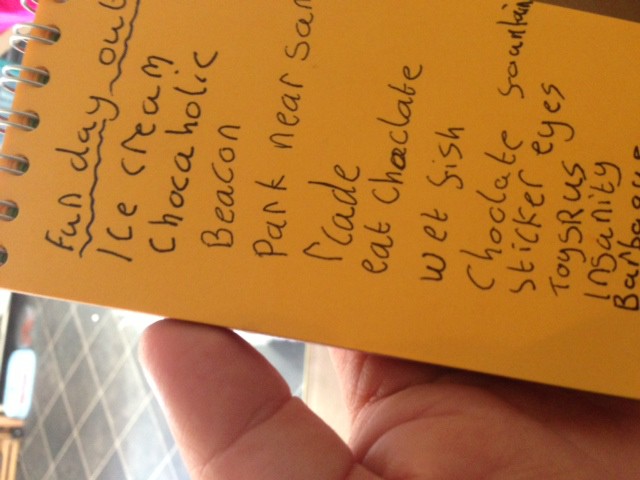 Fun day out
Ice cream
Chocaholic
Beacon
Park near San
rcade
eat Choclate
wet fish
Choclate fountain
sticker eyes
ToysRus
Insanity